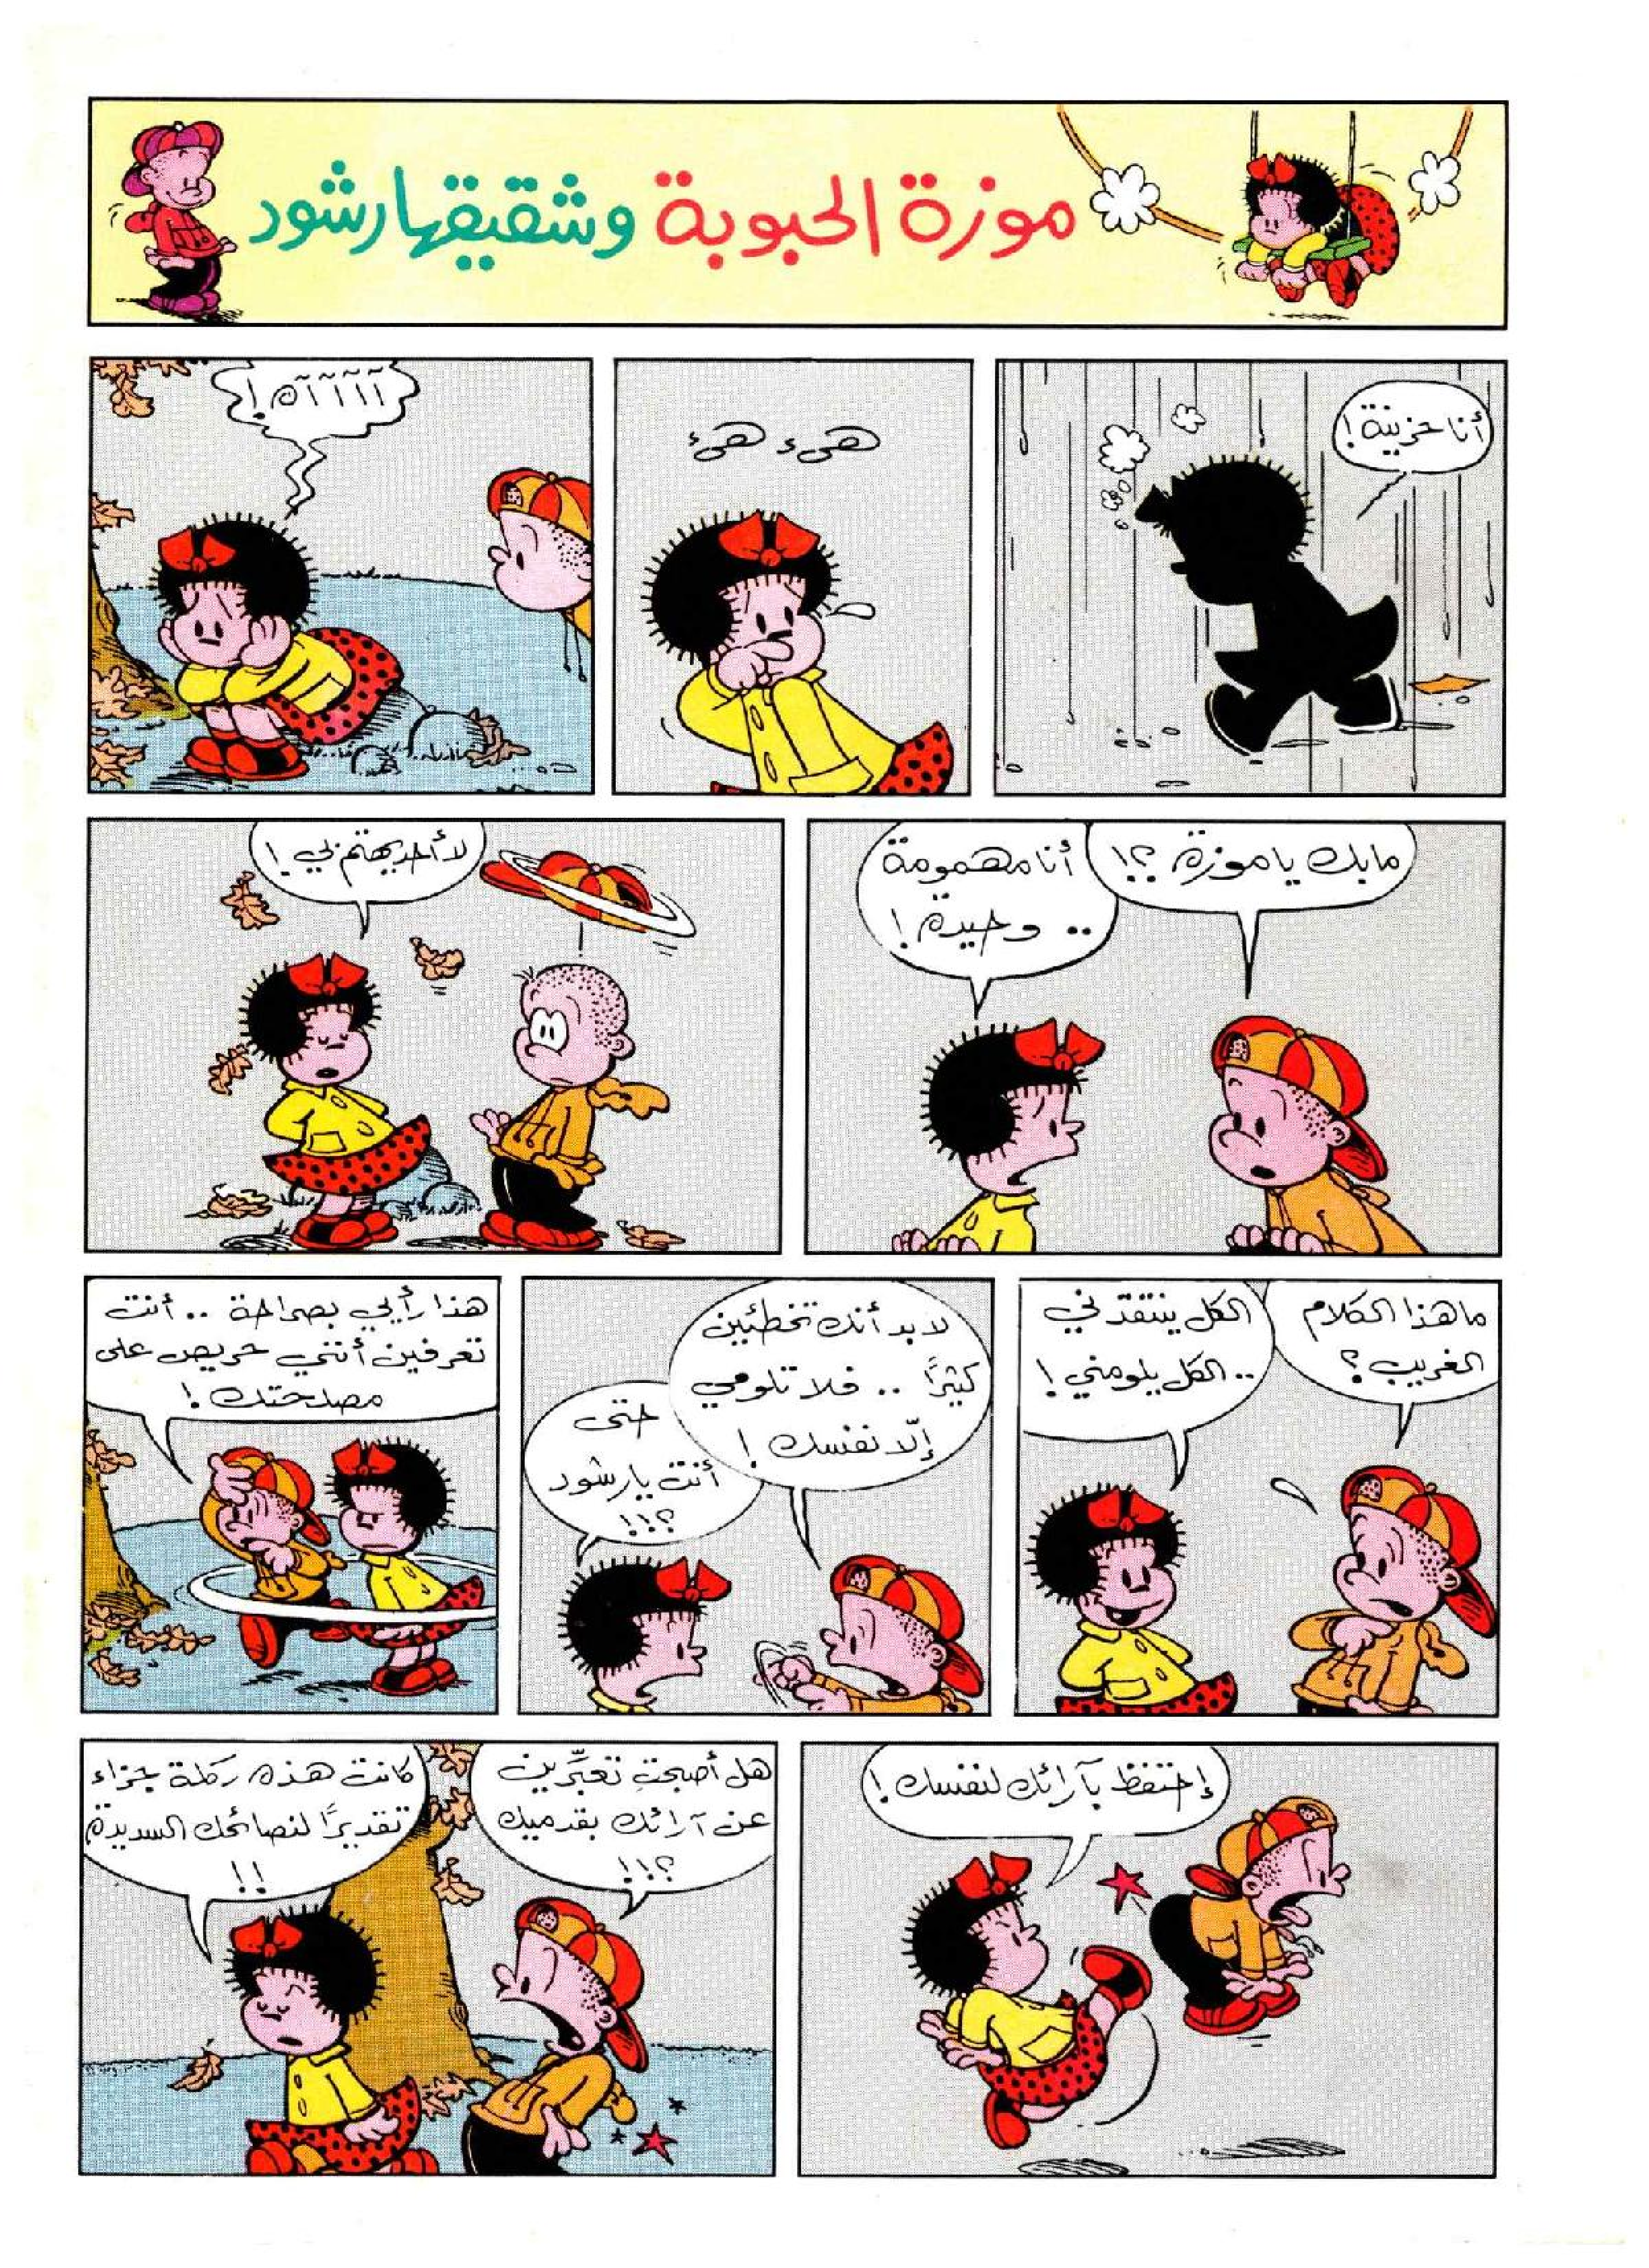 موزة الحبوبة وشقيقها رشود
أنا حزينة!
هىء هىء
آآآآآه!
مابك ياموزة؟!
أنا مهمومة
.. وحيدة!
لا أحد يهتم بي!
ماهذا الكلام
الغريب؟
الكل ينتقدني
.. الكل يلومني!
لا بد أنك تخطئين
كثيرًا .. فلا تلومي
إلّا نفسك!
حتى
أنت يارشود
؟!!!
هذا رأيي بصراحة .. أنت
تعرفين أنني حريص على
مصلحتك!
إحتفظ بآرائك لنفسك!
هل أصبحتِ تعبّرين
عن آرائك بقدميك
؟!!!
كانت هذه ركلة جزاء
تقديرًا لنصائحك السديدة
!!